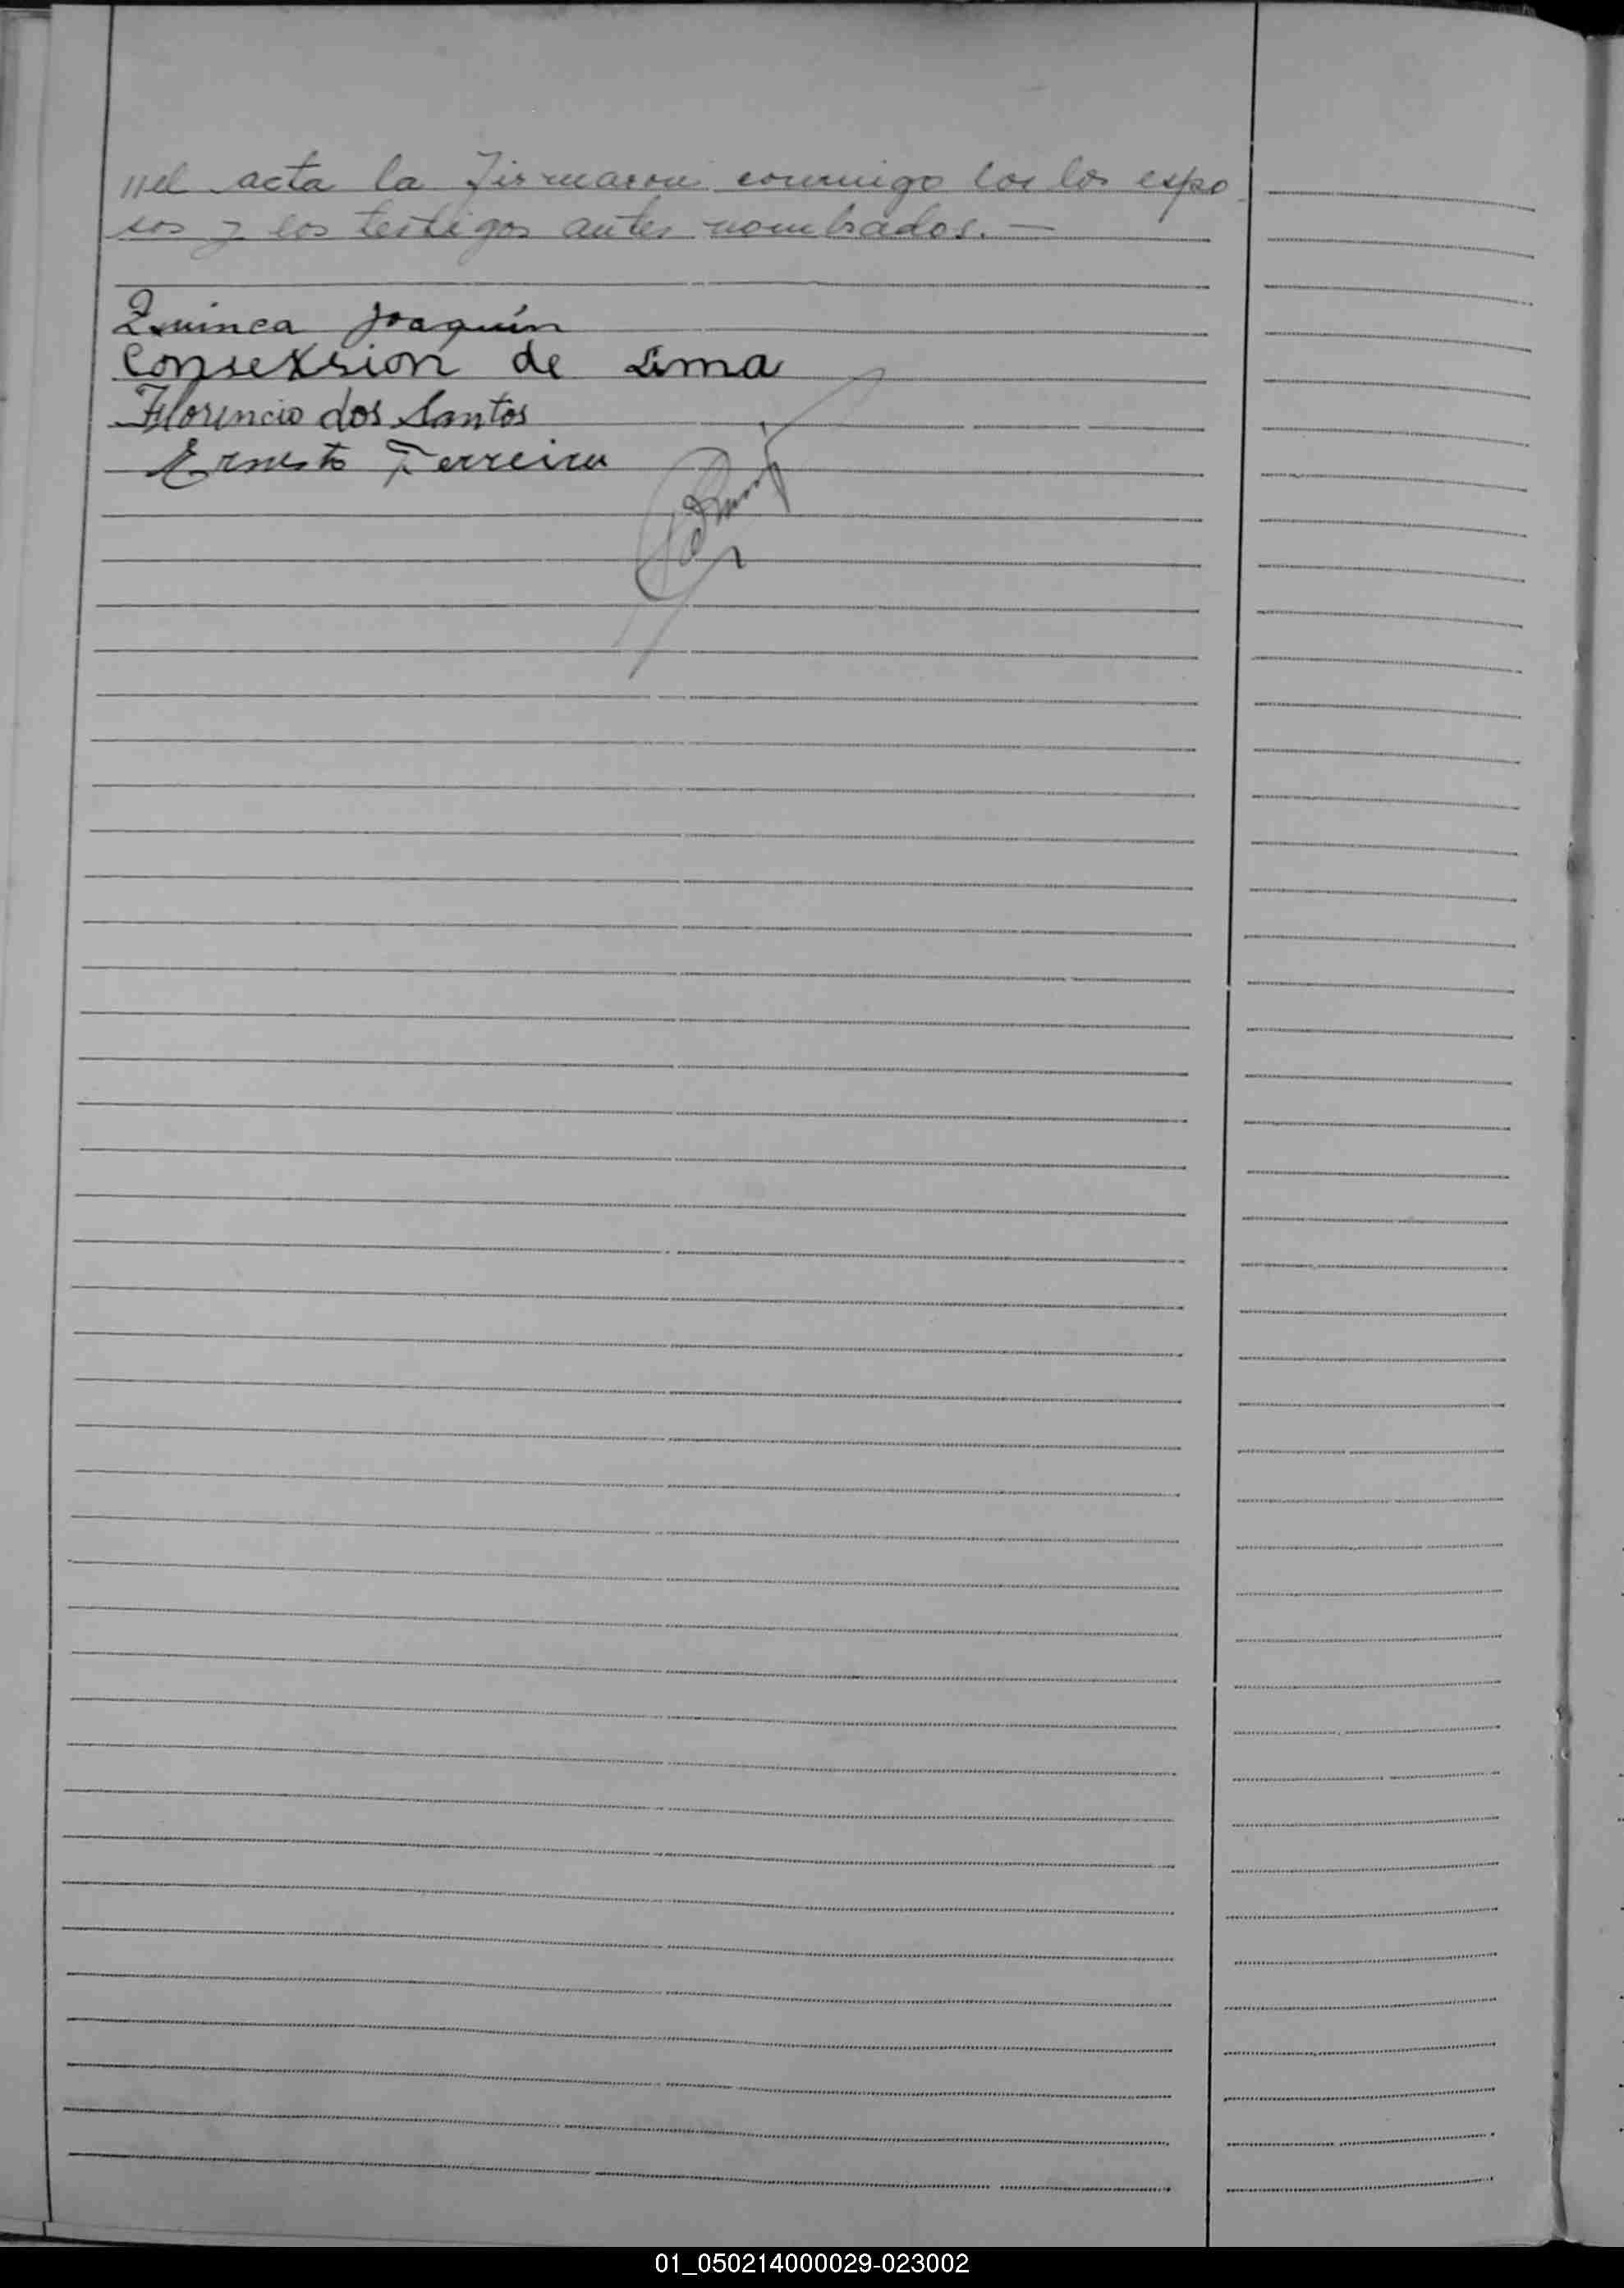 //el acta la firmaron conmigo los los espo
sos y los testigos antes nombrados. —
Quinca Joaquín
Consexsion de Lima
Florencio dos Santos
Ernesto Ferreira
01_050214000029-023002